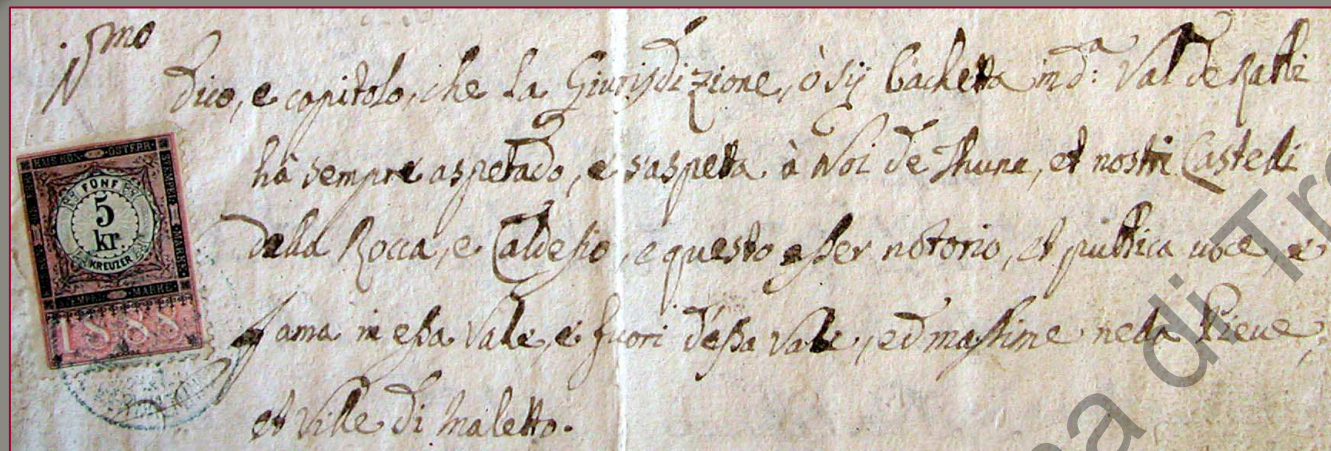 jsmo
dico, e capitolo, che la Giurisdizione, ò sij bachetta in d.a Val de Rabbi
hà sempre aspetado, e s'aspetta à Noi de Thunn, et nostri Castelli
della Rocca, e Caldesio, e questo esser notorio, et publica voce, e
fama in essa Valle, e fuori d'essa Valle, ed massime nella Pieve,
et Ville di Maletto.
KAIS. KÖN. ÖSTERR.
STEMPEL MARKE
FÜNF
5
kr.
KREUZER
1888
a di Tr